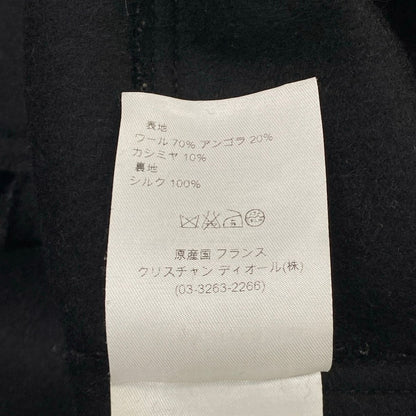 表地
ウール 70% アンゴラ 20%
カシミヤ 10%
裏地
シルク 100%
原産国 フランス
クリスチャン ディオール(株)
(03-3263-2266)